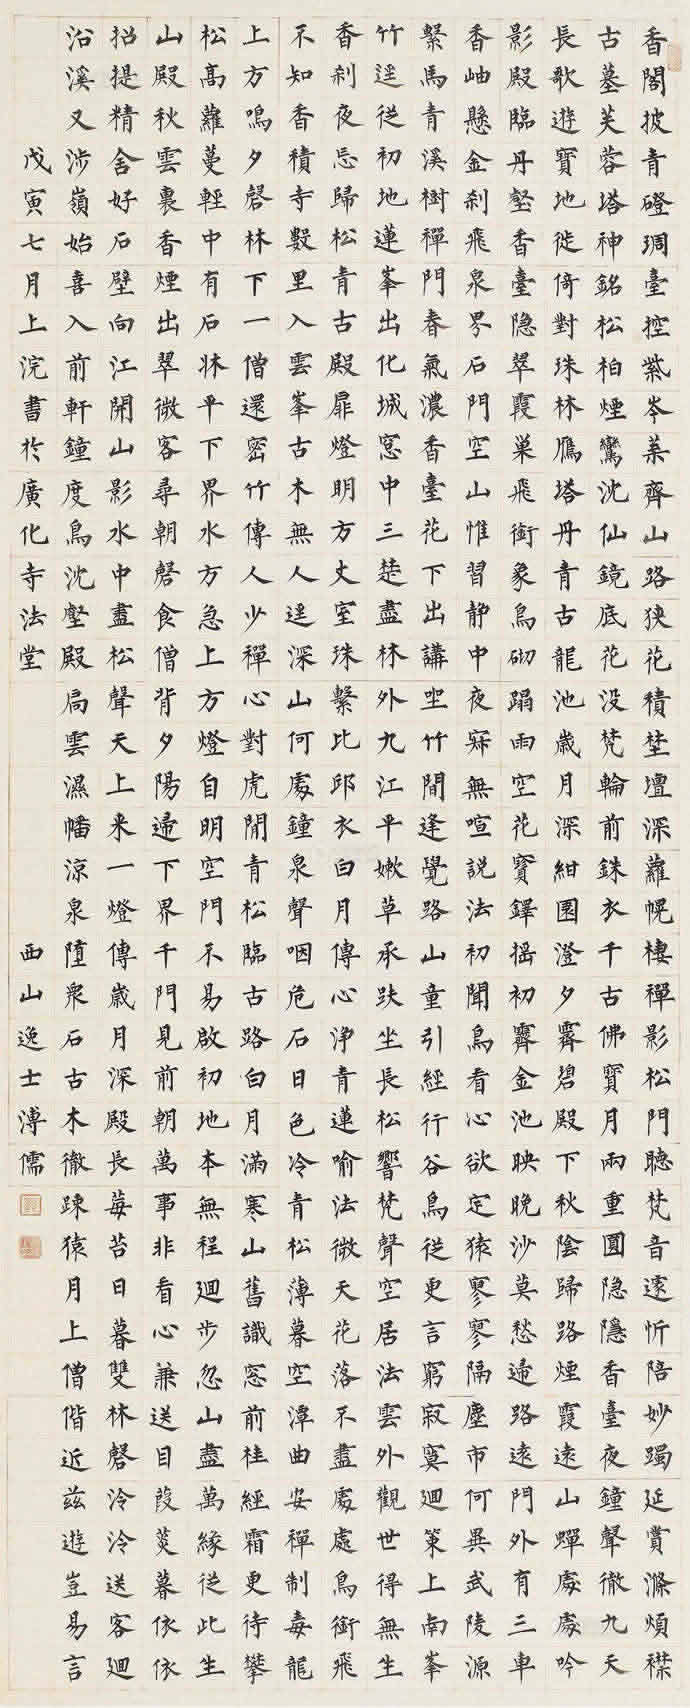 香閣披青磴琱臺控紫岑葉齊山路狹花積埜壇深蘿幌棲禪影松門聽梵音遠忻陪妙躅延賞滌煩襟
古墓芙蓉塔神銘松柏煙鸞沈仙鏡底花没梵輪前銖衣千古佛寶月兩重圓隐隱香臺夜鐘聲徹九天
長歌遊寶地徙倚對珠林鴈塔丹青古龍池歲月深紺園澄夕霽碧殿下秋陰歸路煙霞遠山蟬處處吟
影殿臨丹壑香臺隐翠霞巢飛銜象鳥砌蹋雨空花寶鐸摇初霽金池映晚沙莫愁歸路遠門外有三車
香岫懸金刹飛泉界石門空山惟習静中夜寂無喧説法初聞鳥看心欲定猿寥寥隔塵市何異武陵源
繫馬青溪樹禪門春氣濃香臺花下出講坐竹間逢覺路山童引經行谷鳥從更言窮寂寞迴策上南峯
竹逕從初地蓮峯出化城窓中三楚盡林外九江平嫩草承趺坐長松響梵聲空居法雲外觀世得無生
香刹夜忘歸松青古殿扉燈明方丈室珠繫比邱衣白月傳心净青蓮喻法微天花落不盡處處鳥銜飛
不知香積寺數里入雲峯古木無人逕深山何處鐘泉聲咽危石日色冷青松薄暮空潭曲安禪制毒龍
上方鳴夕磬林下一僧還密竹傳人少禪心對虎閒青松臨古路白月滿寒山舊識窓前桂經霜更待攀
松高蘿蔓輕中有石牀平下界水方急上方燈自明空門不易啟初地本無程迴步忽山盡萬緣從此生
山殿秋雲裏香煙出翠微客尋朝磬食僧背夕陽歸下界千門見前朝萬事非看心兼送目葭菼暮依依
招提精舍好石壁向江開山影水中盡松聲天上来一燈傳歲月深殿長莓苔日暮雙林磬泠泠送客迴
沿溪又涉嶺始喜入前軒鐘度鳥沈壑殿扃雲濕幡涼泉墮衆石古木徹踈猿月上僧偕近茲遊豈易言
戊寅七月上浣書於廣化寺法堂
西山逸士溥儒